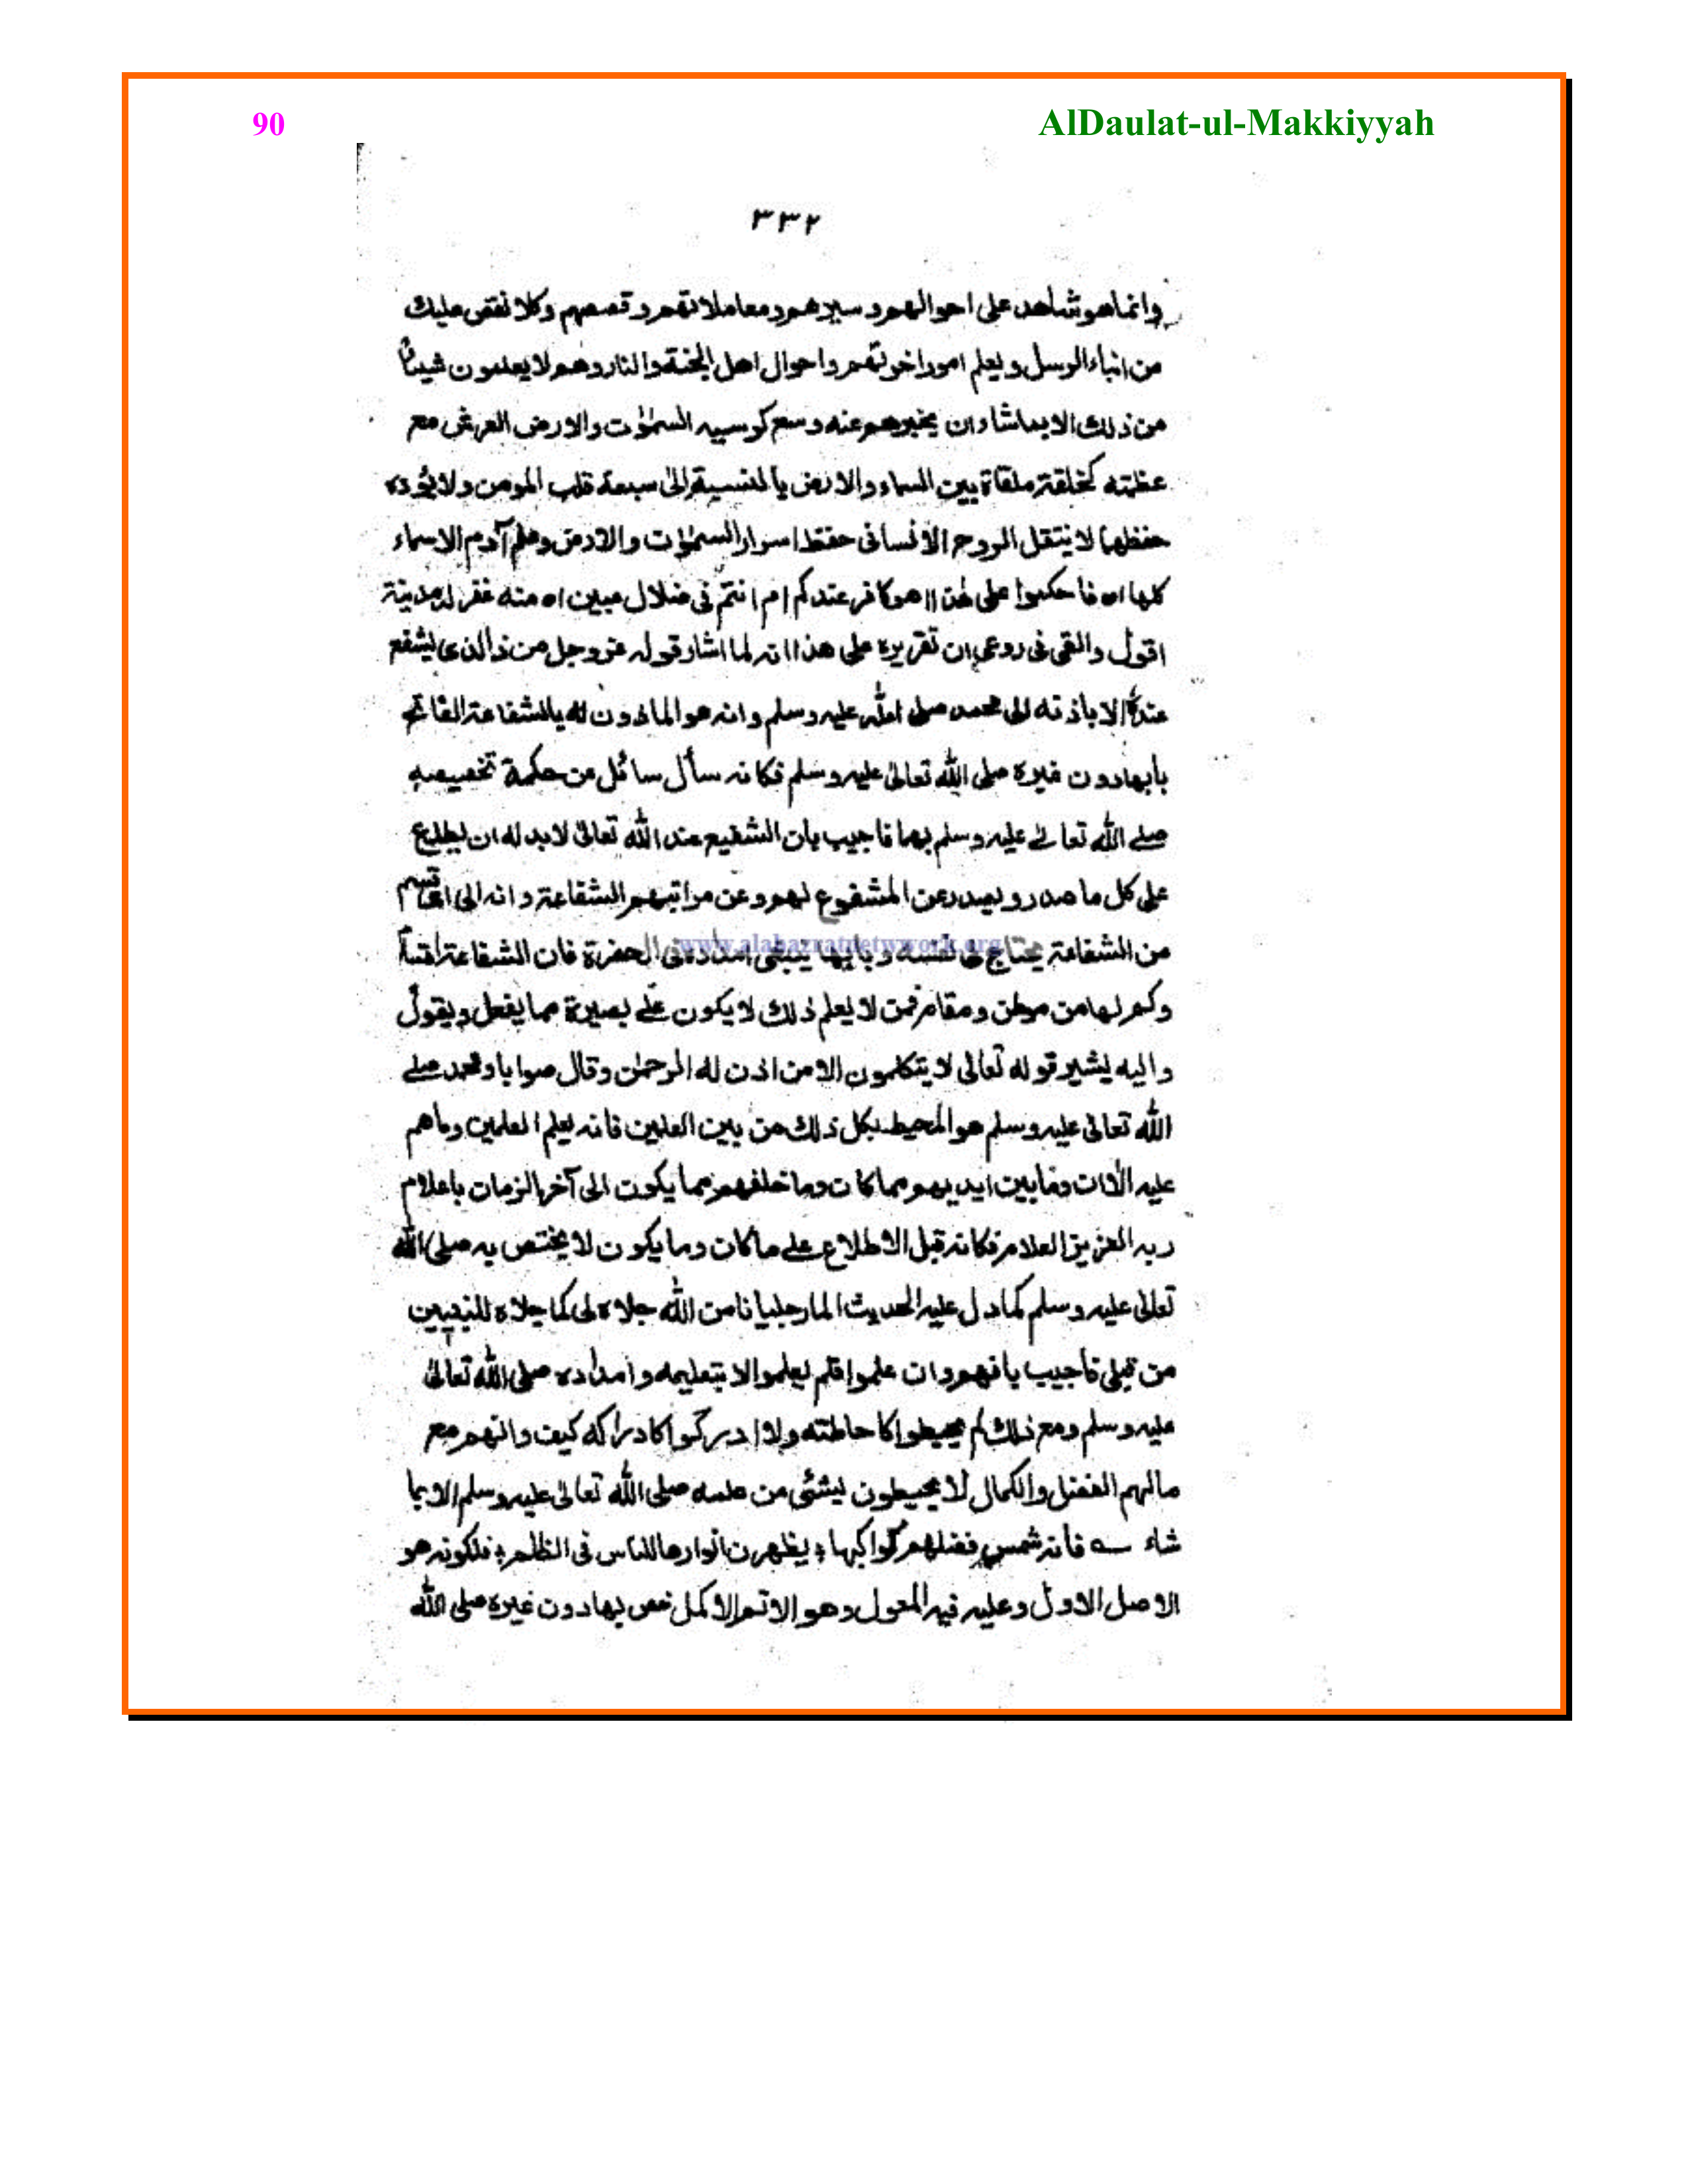 90
AlDaulat-ul-Makkiyyah
٣٣٢
وانما هو شاهد على احوالهم وسيرهم ومعاملاتهم وقصصهم وكلا نقص عليك
من انباء الرسل ويعلم امور اخرتهم واحوال اهل الجنة والنار وهم لا يعلمون شيئا
من ذلك الا بما شاء ان يخبرهم عنه وسع كرسيه السمٰوٰت والارض العرش مع
عظمته كحلقة ملقاة بين السماء والارض بالنسبة الى سعة قلب المومن ولا يؤده
حفظهما لا يثقل الروح الانسانى حفظ اسرار السمٰوٰت والارض وعلم آدم الاسماء
كلها اه فاحكموا على هذا اهو كافر عندكم ام انتم فى ضلال مبين اه منه غفر له مدنية
اقول والقى فى روعى ان تقريره على هذا انه لما اشار قوله عز وجل من ذا الذى يشفع
عنده الا باذنه الى محمد صلى الله عليه وسلم وانه هو الماذون له بالشفاعة الفاتح
بابها دون غيره صلى الله تعالىٰ عليه وسلم فكانه سأل سائل عن حكمة تخصيصه
صلے الله تعالےٰ عليه وسلم بها فاجيب بان الشفيع عند الله تعالىٰ لا بد له ان يطلع
على كل ما صدر ويصدر عن المشفوع لهم وعن مراتبهم الشفاعة وانه الى اى قسم
من الشفاعة يحتاج فى نفسه و ينبغى امداده فى الحضرة فان الشفاعة اقسام
www.alahazratnetwork.org
وكم لها من موطن ومقام فمن لا يعلم ذلك لا يكون علے بصيرة مما يفعل ويقول
واليه يشير قوله تعالى لا يتكلمون الا من اذن له الرحمٰن وقال صوابا ومحمد صلے
الله تعالى عليه وسلم هو المحيط بكل ذلك من بين العلمين فانه يعلم العلمين وما هم
عليه الاٰن وما بين ايديهم مما كان وما خلفهم مما يكون الى آخر الزمان باعلام
ربه العزيز العلام فكانه قيل الاطلاع علے ما كان وما يكون لا يختص به صلى الله
تعالىٰ عليه وسلم كما دل عليه الحديث المار جليانا من الله جلاه لى كما جلاه للنبيين
من قبلى فاجيب بانهم وان علموا فلم يعلموا الا بتعليمه وامداده صلى الله تعالىٰ
عليه وسلم ومع ذلك لم يحيطوا كاحاطته ولا ادركوا كادراكه كيف وانهم مع
مالهم الفضل والكمال لا يحيطون بشئ من علمه صلى الله تعالىٰ عليه وسلم الا بما
شاء ؎ فانه شمس فضلهم كواكبها ؛ يظهرن انوارها للناس فى الظلم ؛ فلكونه هو
الاصل الاول وعليه فيه المعول وهو الاتم الاكمل خص بها دون غيره صلى الله